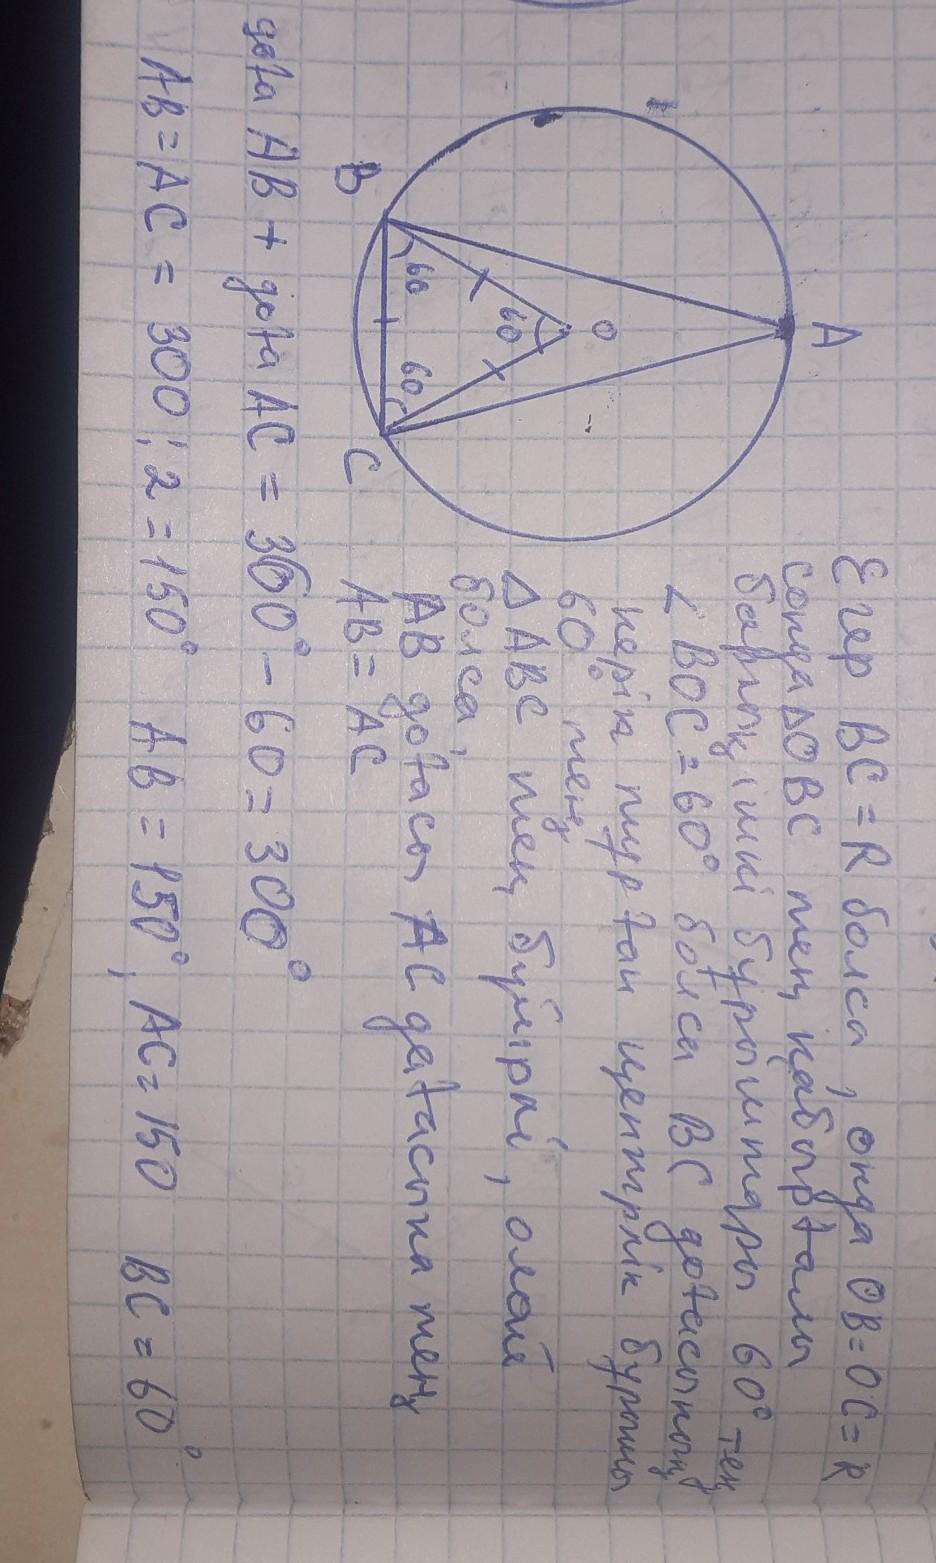 A
O
60
60
60
B
C
Егер BC = R болса, онда OB = OC = R
сонда ΔOBC тең қабырғалы
барлық ішкі бұрыштары 60° тең
∠ BOC = 60° болса BC доғасының
керіп тұрған центрлік бұрышы
60° тең
Δ ABC тең бүйірлі, олай
болса,
AB доғасы AC доғасына тең
AB = AC
доға AB + доға AC = 360° - 60 = 300°
AB = AC = 300 : 2 = 150° AB = 150°, AC = 150 BC = 60°